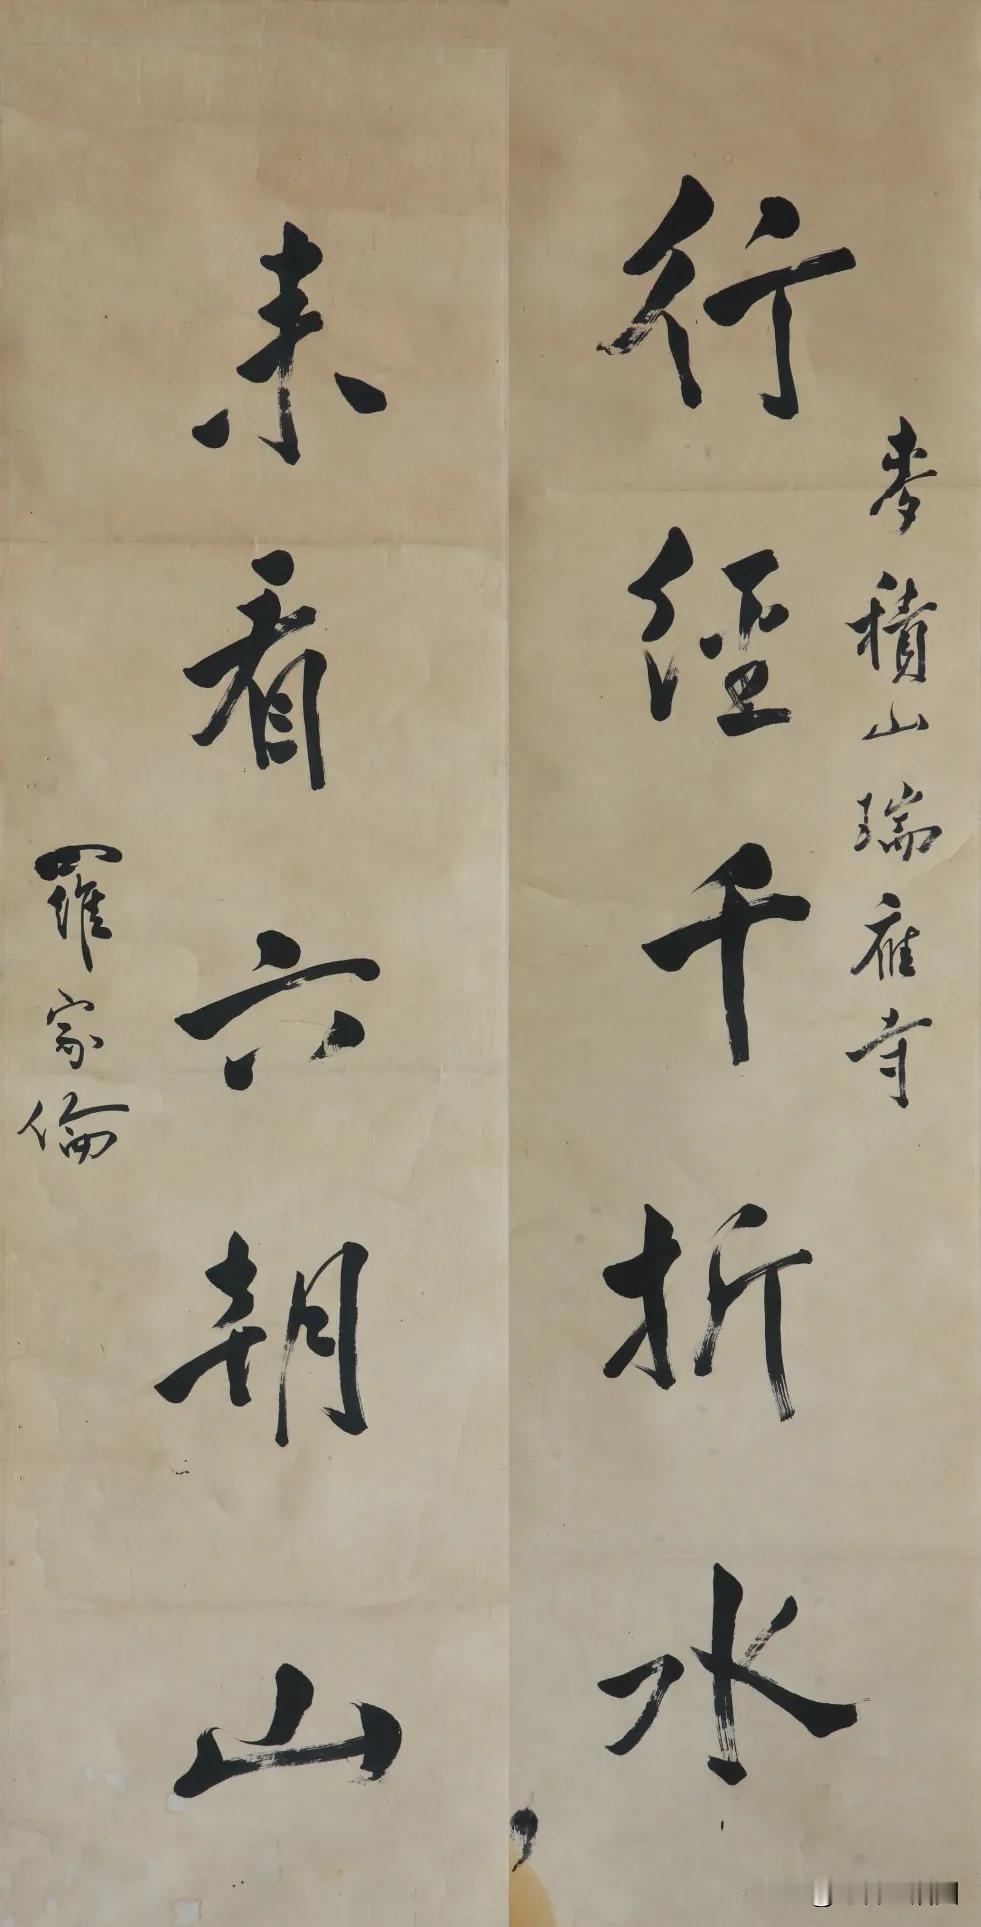 麥積山瑞應寺
行經千折水
来看六朝山
羅家倫